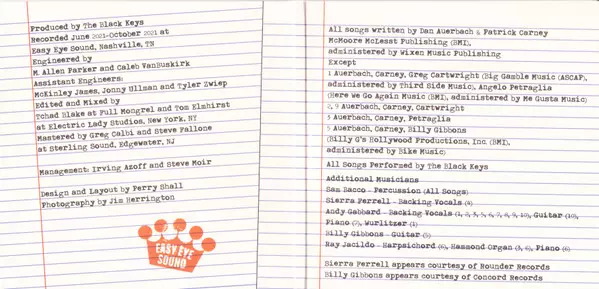 Produced by The Black Keys
Recorded June 2021-October 2021 at
Easy Eye Sound, Nashville, TN
Engineered by
M. Allen Parker and Caleb VanBuskirk
Assistant Engineers:
McKinley James, Jonny Ullman and Tyler Zwiep
Edited and Mixed by
Tchad Blake at Full Mongrel and Tom Elmhirst
at Electric Lady Studios, New York, NY
Mastered by Greg Calbi and Steve Fallone
at Sterling Sound, Edgewater, NJ
Management: Irving Azoff and Steve Moir
Design and Layout by Perry Shall
Photography by Jim Herrington
EASY EYE
SOUND
All songs written by Dan Auerbach & Patrick Carney
McMoore McLesst Publishing (BMI),
administered by Wixen Music Publishing
Except
1 Auerbach, Carney, Greg Cartwright (Big Gamble Music (ASCAP),
administered by Third Side Music), Angelo Petraglia
(Here We Go Again Music (BMI), administered by Me Gusta Music)
2, 9 Auerbach, Carney, Cartwright
3 Auerbach, Carney, Petraglia
5 Auerbach, Carney, Billy Gibbons
(Billy G's Hollywood Productions, Inc (BMI),
administered by Bike Music)
All Songs Performed by The Black Keys
Additional Musicians
Sam Bacco - Percussion (All Songs)
Sierra Ferrell - Backing Vocals (4)
Andy Gabbard - Backing Vocals (1, 2, 3, 5, 6, 7, 8, 9, 10), Guitar (10),
Piano (7), Wurlitzer (1)
Billy Gibbons - Guitar (5)
Ray Jacildo - Harpsichord (6), Hammond Organ (3, 6), Piano (6)
Sierra Ferrell appears courtesy of Rounder Records
Billy Gibbons appears courtesy of Concord Records